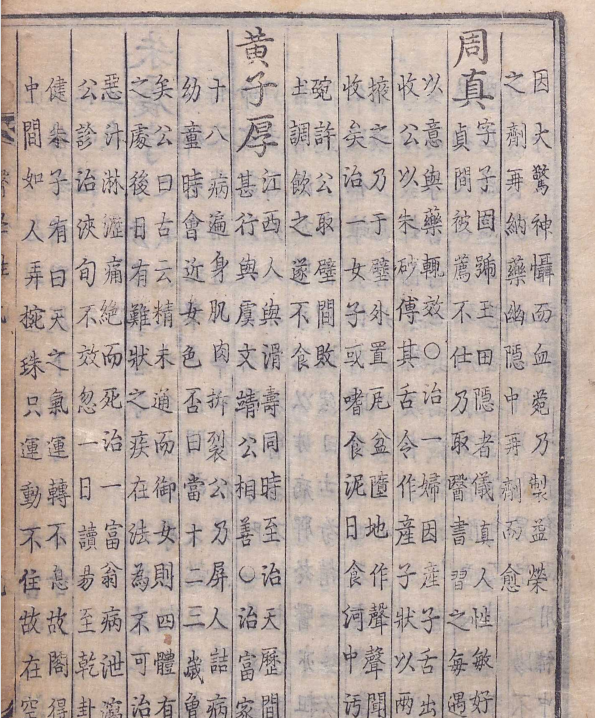 因大驚神懾而血菀乃製益榮
之劑再納藥幽隱中再劑而愈
周真
字子固號玉田隱者儀真人性敏好
貞間被薦不仕乃取醫書習之每遇
以意與藥輒效○治一婦因產子舌出
收公以朱砂傅其舌令作產子狀以兩
掖之乃于壁外置瓦盆墮地作聲聲聞
收矣治一女子或嗜食泥日食河中污
碗許公取壁間敗
土調飲之遂不食
黄子厚
江西人與滑壽同時至治天歷間
甚行與虞文靖公相善○治富家
十八病遍身肌肉拆裂公乃屏人詰病
幼童時曾近女色否曰當十二三歲曾
矣公曰古云精未通而御女則四體有
之處後日有難狀之疾在法為不可治
惡汁淋瀝痛絕而死治一富翁病泄瀉
公診治浹旬不效忽一日讀易至乾卦
健朱子有曰天之氣運轉不息故閣得
中間如人弄椀珠只運動不住故在空